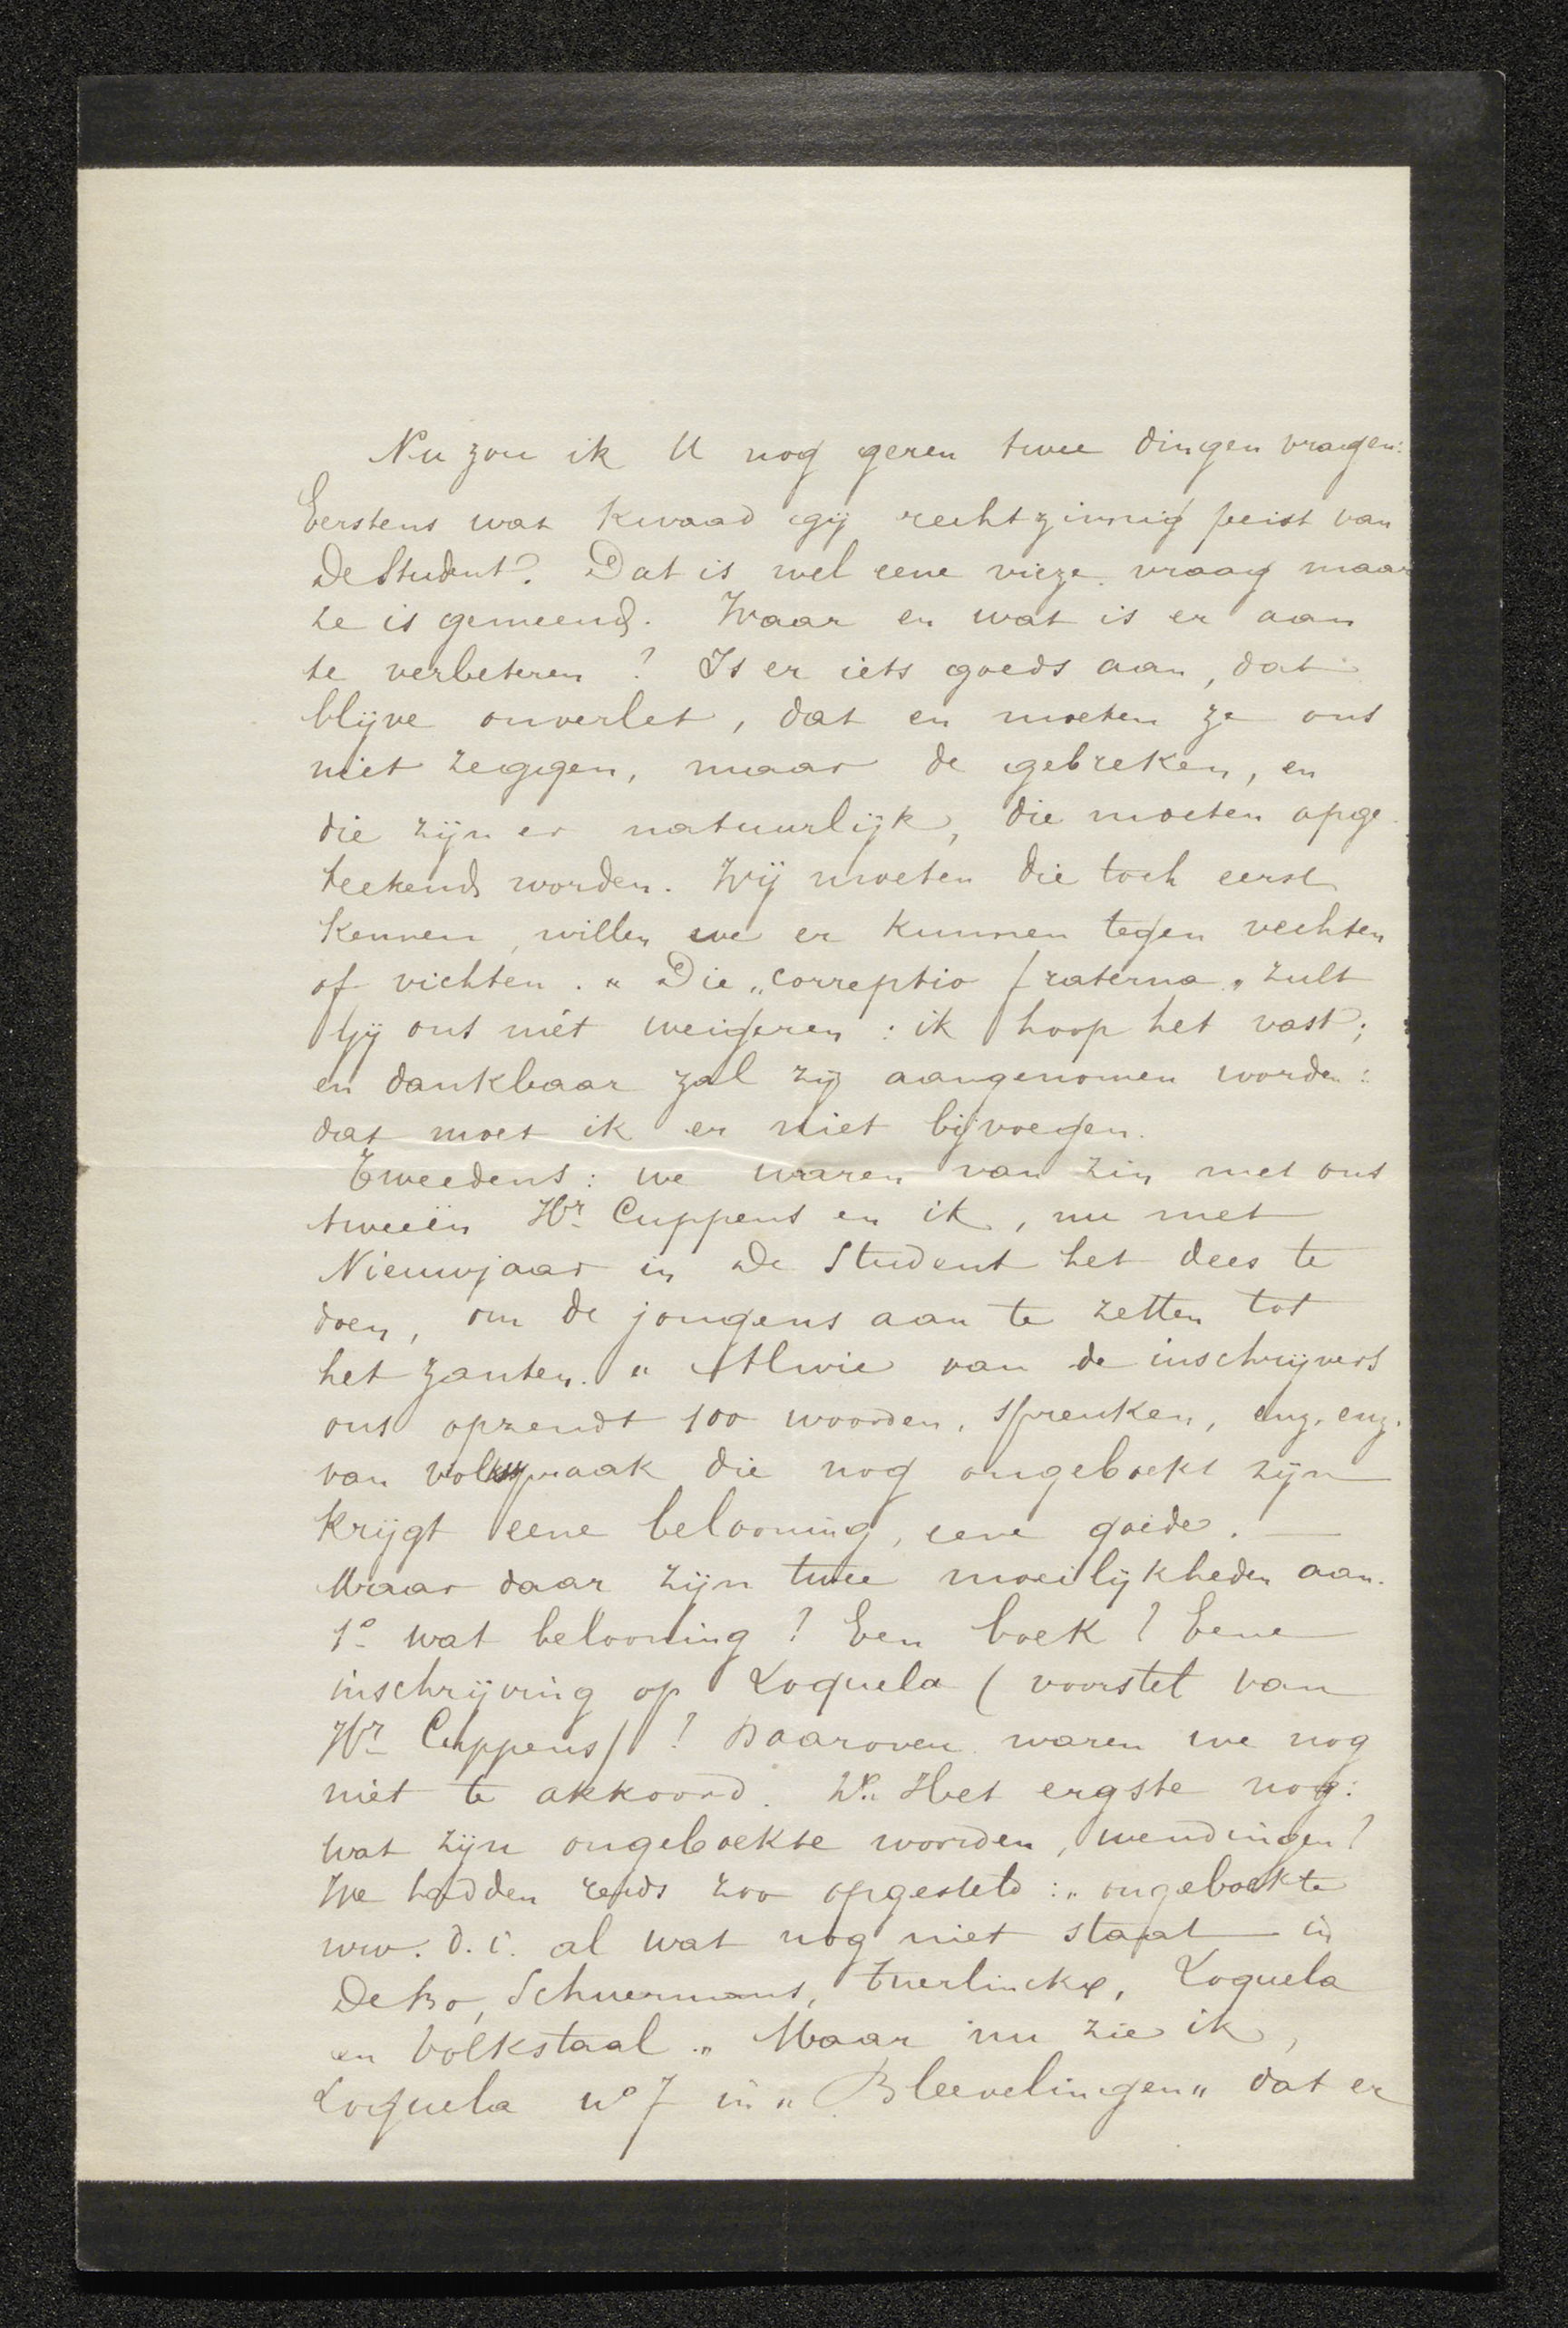 Nu zou ik U nog geren twee dingen vragen:
Eerstens wat kwaad gij rechtzinnig peist van
De Student? Dat is wel eene vieze vraag maar
ze is gemeend. Waar en wat is er aan
te verbeteren? Is er iets goeds aan, dat
blijve onverlet, dat en moeten ze ons
niet zeggen, maar de gebreken, en
die zijn er natuurlijk, die moeten opge-
teekend worden. Wij moeten die toch eerst
kennen, willen we er kunnen tegen vechten
of vichten. " Die „correptio fraterna" zult
Gij ons niet weigeren: ik hoop het vast;
en dankbaar zal zij aangenomen worden:
dat moet ik er niet bijvoegen.
Tweedens: we waren van zin met ons
tweeën Hr Cuppens en ik, nu met
Nieuwjaar in De Student het dees te
doen, om de jongens aan te zetten tot
het zanten. " Alwie van de inschrijvers
ons opzendt 100 woorden, spreuken, enz. enz.
van volksspraak die nog ongeboekt zijn
krijgt eene belooning, eene goede. —
Maar daar zijn twee moeilijkheden aan.
1o wat belooning? Een boek? Eene
inschrijving op Loquela (voorstel van
Hr Cuppens)? Daarover waren we nog
niet te akkoord. Het ergste nog:
wat zijn ongeboekte woorden, wendingen?
We hadden reeds zoo opgesteld: „ongeboekte
ww. d. i. al wat nog niet staat in
De Bo, Schuermans, Tuerlinckx, Loquela
en Volkstaal." Maar nu zie ik,
Loquela no 7 in „Bleevelingen" dat er